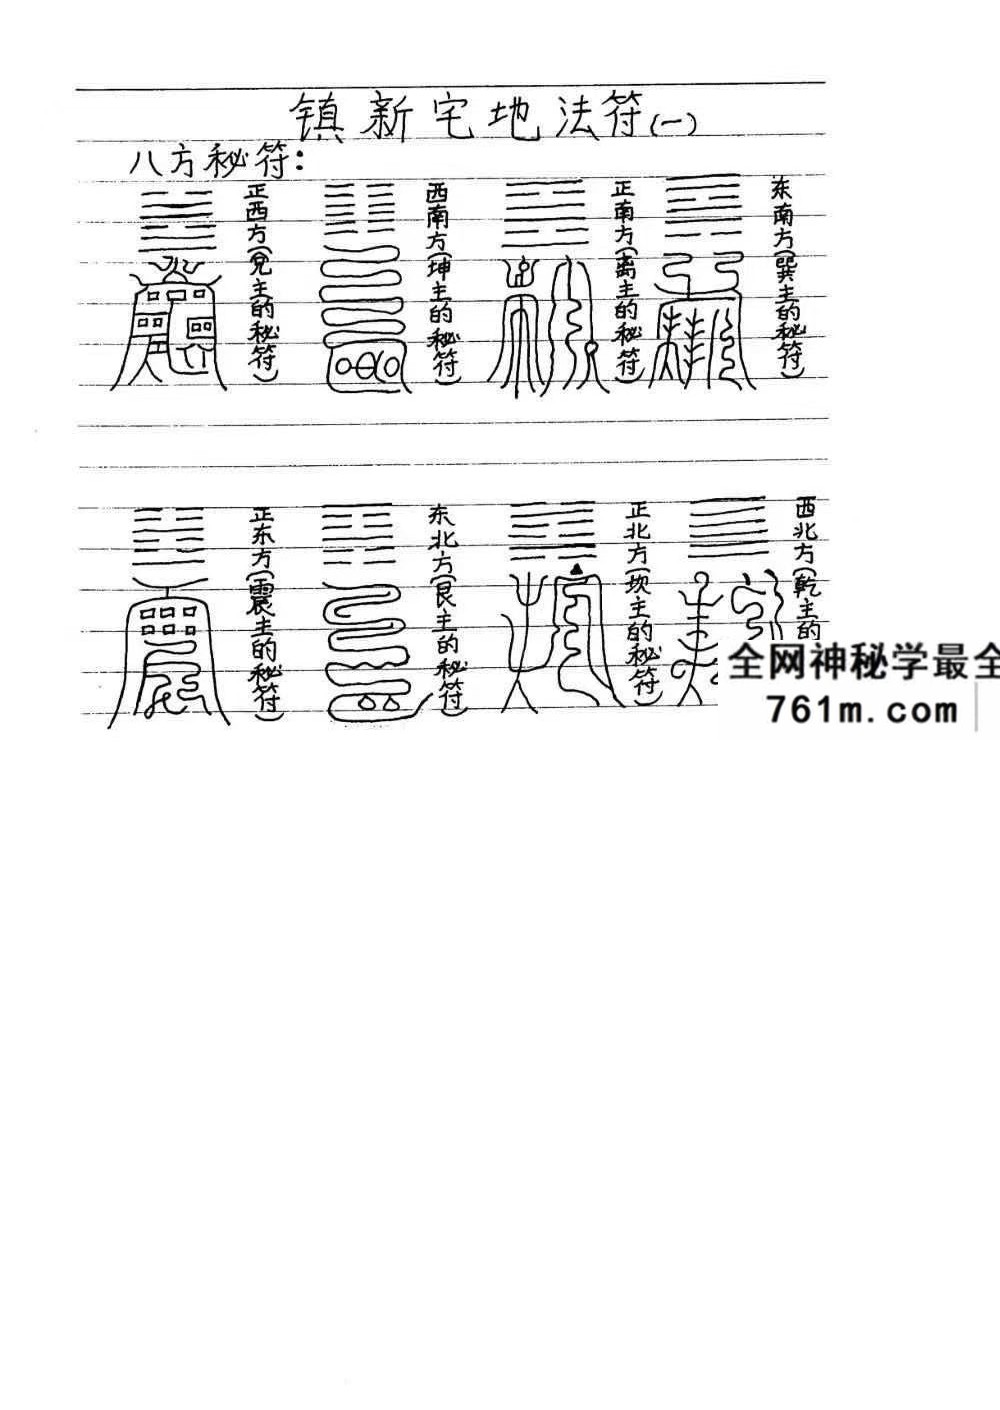 镇新宅地法符(一)
八方秘符：
正西方(兑主的秘符)
西南方(坤主的秘符)
正南方(离主的秘符)
东南方(巽主的秘符)
正东方(震主的秘符)
东北方(艮主的秘符)
正北方(坎主的秘符)
西北方(乾主的
全网神秘学最全
761m.com